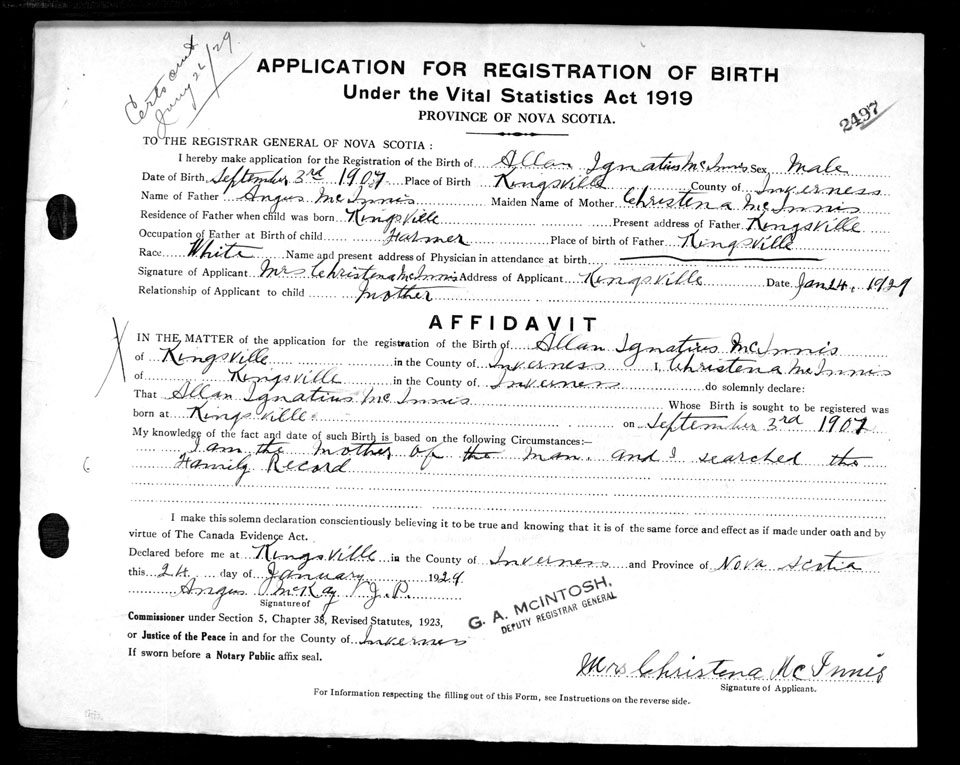 Certs out
Jany 26/29.
APPLICATION FOR REGISTRATION OF BIRTH
Under the Vital Statistics Act 1919
PROVINCE OF NOVA SCOTIA.
2497
TO THE REGISTRAR GENERAL OF NOVA SCOTIA:
I hereby make application for the Registration of the Birth of Allan Ignatius McInnis Sex Male
Date of Birth September 3rd 1907 Place of Birth Kingsville County of Inverness
Name of Father Angus McInnis Maiden Name of Mother Christena McInnis
Residence of Father when child was born Kingsville Present address of Father Kingsville
Occupation of Father at Birth of child Farmer Place of birth of Father Kingsville
Race White Name and present address of Physician in attendance at birth
Signature of Applicant Mrs Christena McInnis Address of Applicant Kingsville Date Jan 24. 1929
Relationship of Applicant to child Mother
AFFIDAVIT
IN THE MATTER of the application for the registration of the Birth of Allan Ignatius McInnis
of Kingsville in the County of Inverness I, Christena McInnis
of Kingsville in the County of Inverness do solemnly declare:
That Allan Ignatius McInnis Whose Birth is sought to be registered was
born at Kingsville on September 3rd 1907
My knowledge of the fact and date of such Birth is based on the following Circumstances:—
I am the mother of the man. and I searched the
Family Record
I make this solemn declaration conscientiously believing it to be true and knowing that it is of the same force and effect as if made under oath and by
virtue of The Canada Evidence Act.
Declared before me at Kingsville in the County of Inverness and Province of Nova Scotia
this 24 day of January 1929
Angus McKay J.P.
Signature of
G. A. McINTOSH,
DEPUTY REGISTRAR GENERAL
Commissioner under Section 5, Chapter 38, Revised Statutes, 1923,
or Justice of the Peace in and for the County of Inverness
If sworn before a Notary Public affix seal.
Mrs Christena McInnis
Signature of Applicant.
For Information respecting the filling out of this Form, see Instructions on the reverse side.